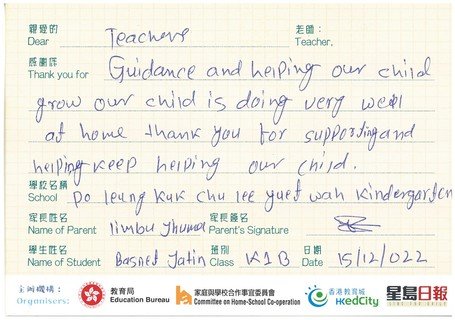 親愛的 老師：
Dear Teachers Teacher,
感謝你
Thank you for Guidance and helping our child
grow our child is doing very well
at home thank you for supporting and
helping keep helping our child.
學校名稱
School Po leung kuk chu lee yuet wah kindergarten
家長姓名 家長簽名
Name of Parent limbu Jhuma Parent's Signature
學生姓名 班別 日期
Name of Student Basnet Jatin Class K1B Date 15/12/022
主辦機構：
Organisers:
教育局
Education Bureau
家庭與學校合作事宜委員會
Committee on Home-School Co-operation
香港教育城
HKedCity
星島日報